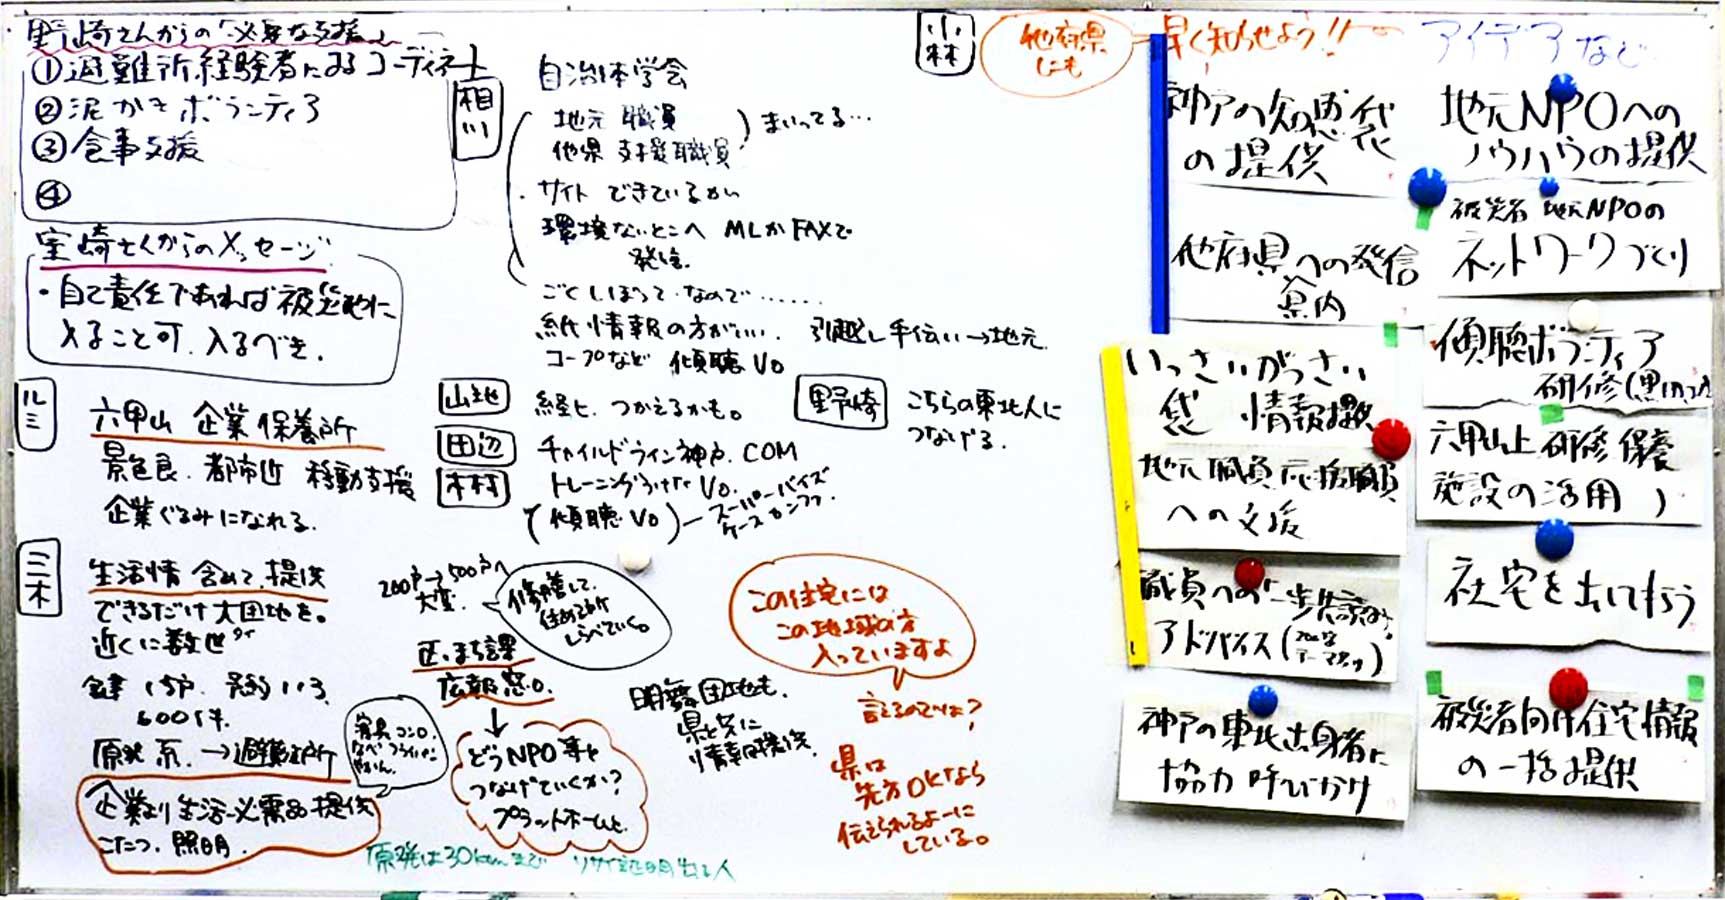 野崎さんからの「必要な支援」
①避難所経験者によるコーディネート
②泥かきボランティア
③食事支援
④
室崎さんからのメッセージ
・自己責任であれば被災地に
入ること可.入るべき.
ルミ
六甲山 企業保養所
景色良.都市近 移動支援
企業ぐるみになれる.
三木
生活情 含めて.提供
できるだけ大団地を。
近くに数世
600件.
原発系.→避難所
企業より生活必需品提供
こたつ.照明.
家具 コンロ.
なべ フライパン
やかん.
相川
自治体学会
地元 職員
他県 支援職員
まいってる…
・サイト できているかい
環境ないとこへ MLかFAXで
発信.
ごくしぼって.なので……
紙情報の方がいい.
引越し手伝い→地元.
コープなど 傾聴Vo
山地
経ヒ.つかえるかも。
田辺
チャイルドライン神戸.COM
木村
トレーニングうけた Vo.
(傾聴Vo)
スーパーバイズ
ケースカンファ
野崎
こちらの東北人に
つなげる.
200戸→500戸へ
大変.
修繕して.
住めるか
しらべていく。
区.まち課
広報窓口.
↓
どうNPO等と
つなげていくか?
プラットホームと.
明舞団地も.
県と共に
情報提供.
この住宅には
この地域の方
入っていますよ
言えるのでは?
県は
先方OKなら
伝えられるよーに
している。
原発は30kmまで
リサイ証明出る人
小林
他府県
にも
早く知らせよう!!
神戸の知恵袋
の提供
他府県への発信
県内
いっさいがっさい
袋 情報提供
地元職員応援職員
への支援
職員への「一歩先読み」
アドバイス
神戸の東北出身者に
協力呼びかけ
アイデアなど
地元NPOへの
ノウハウの提供
被災者 地元NPOの
ネットワークづくり
傾聴ボランティア
研修
六甲山上研修保養
施設の活用
社宅を出してもらう
被災者向け住宅情報
の一括提供